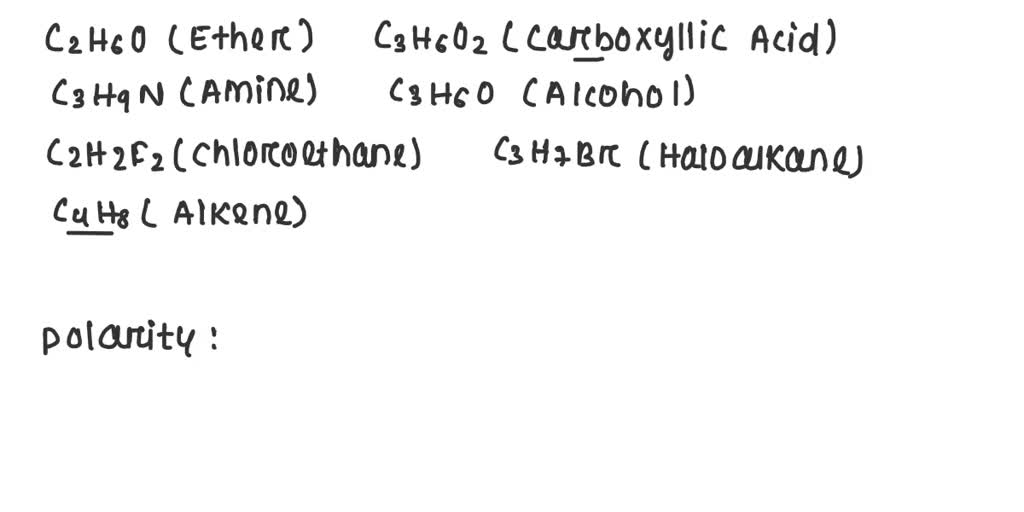 C2H6O (Ether) C3H6O2 (Carboxyllic Acid)
C3H9N (Amine) C3H6O (Alcohol)
C2H2F2 (Chloroethane) C3H7Br (Haloalkane)
C4H8 (Alkene)
Polarity: